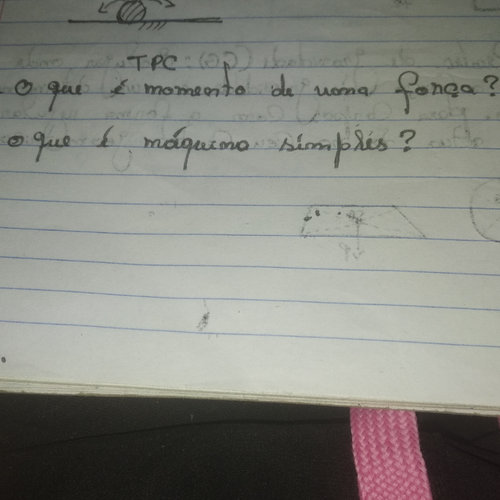 TPC
O que é momento de uma força?
O que é máquina simplés?